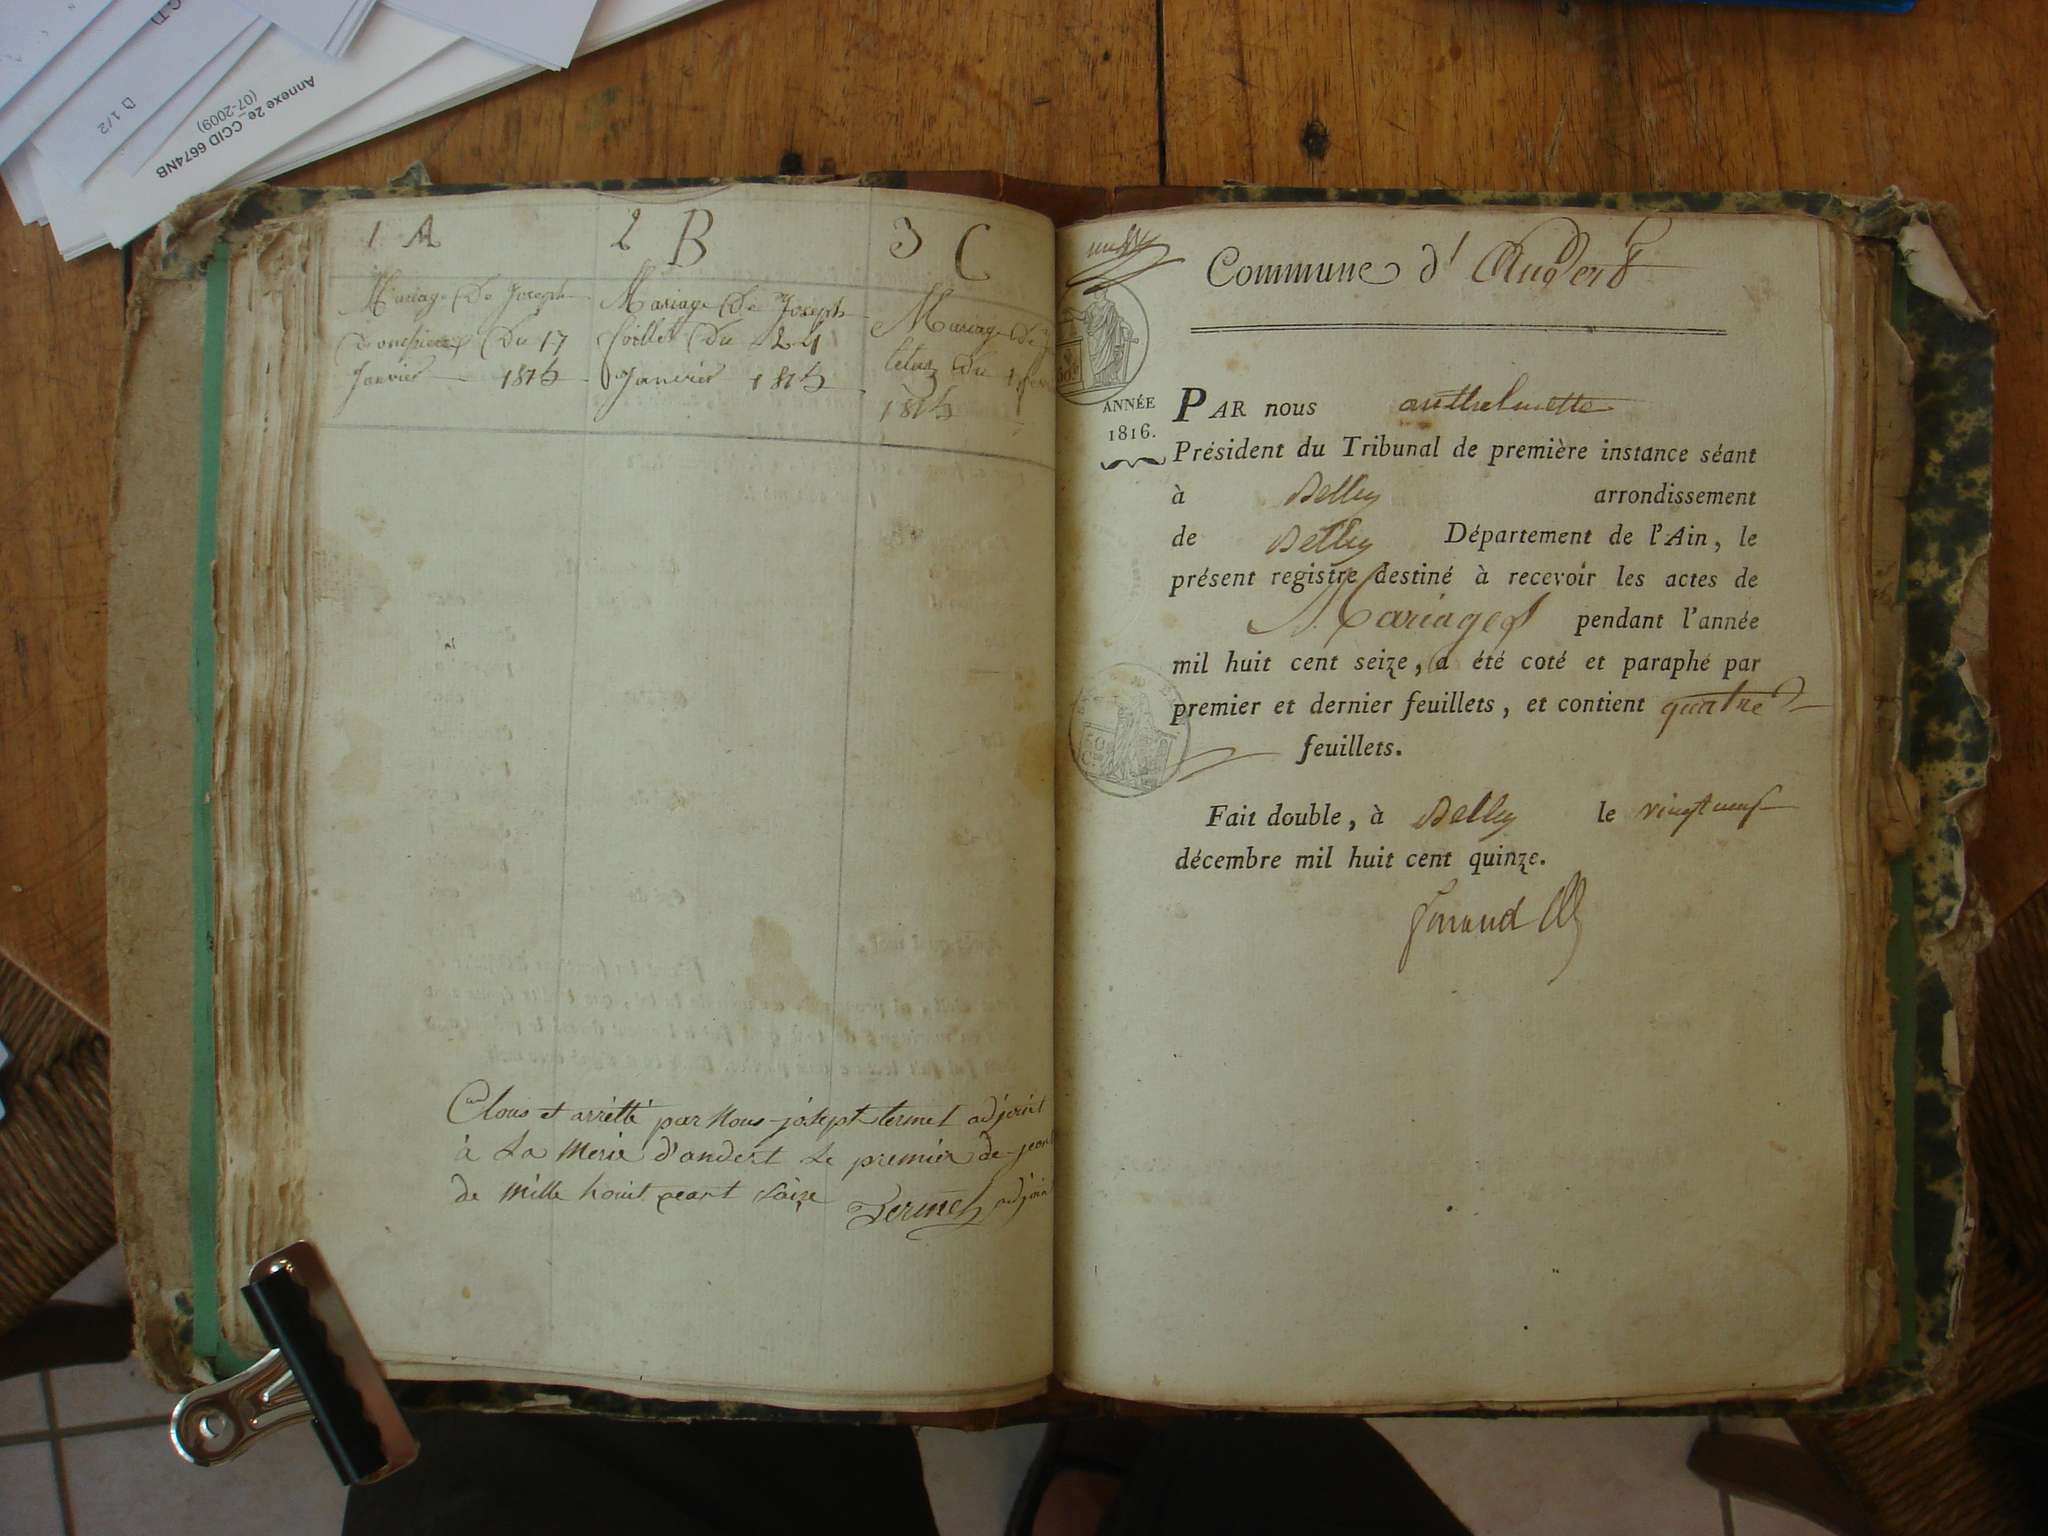 Annexe 2e_CCID 6674NB
(07-2009)
D 1/2
1 A
Mariage De Joseph
Du 17
Janvier 1815
2 B
Mariage De Joseph
Du 24
Janvier 1815
3 C
Mariage De
Du 1
1815
Clous et arrétté par Nous joseph termet adjoint
à La Merie d'andert Le premier de
de Mille houit ceant saize
Termet adjoint
Commune d'Andert
ANNÉE
1816.
PAR nous
Président du Tribunal de première instance séant
à Belley arrondissement
de Belley Département de l'Ain, le
présent registre destiné à recevoir les actes de
Mariages pendant l'année
mil huit cent seize, a été coté et paraphé par
premier et dernier feuillets, et contient quatre
feuillets.
Fait double, à Belley le vingt neuf
décembre mil huit cent quinze.